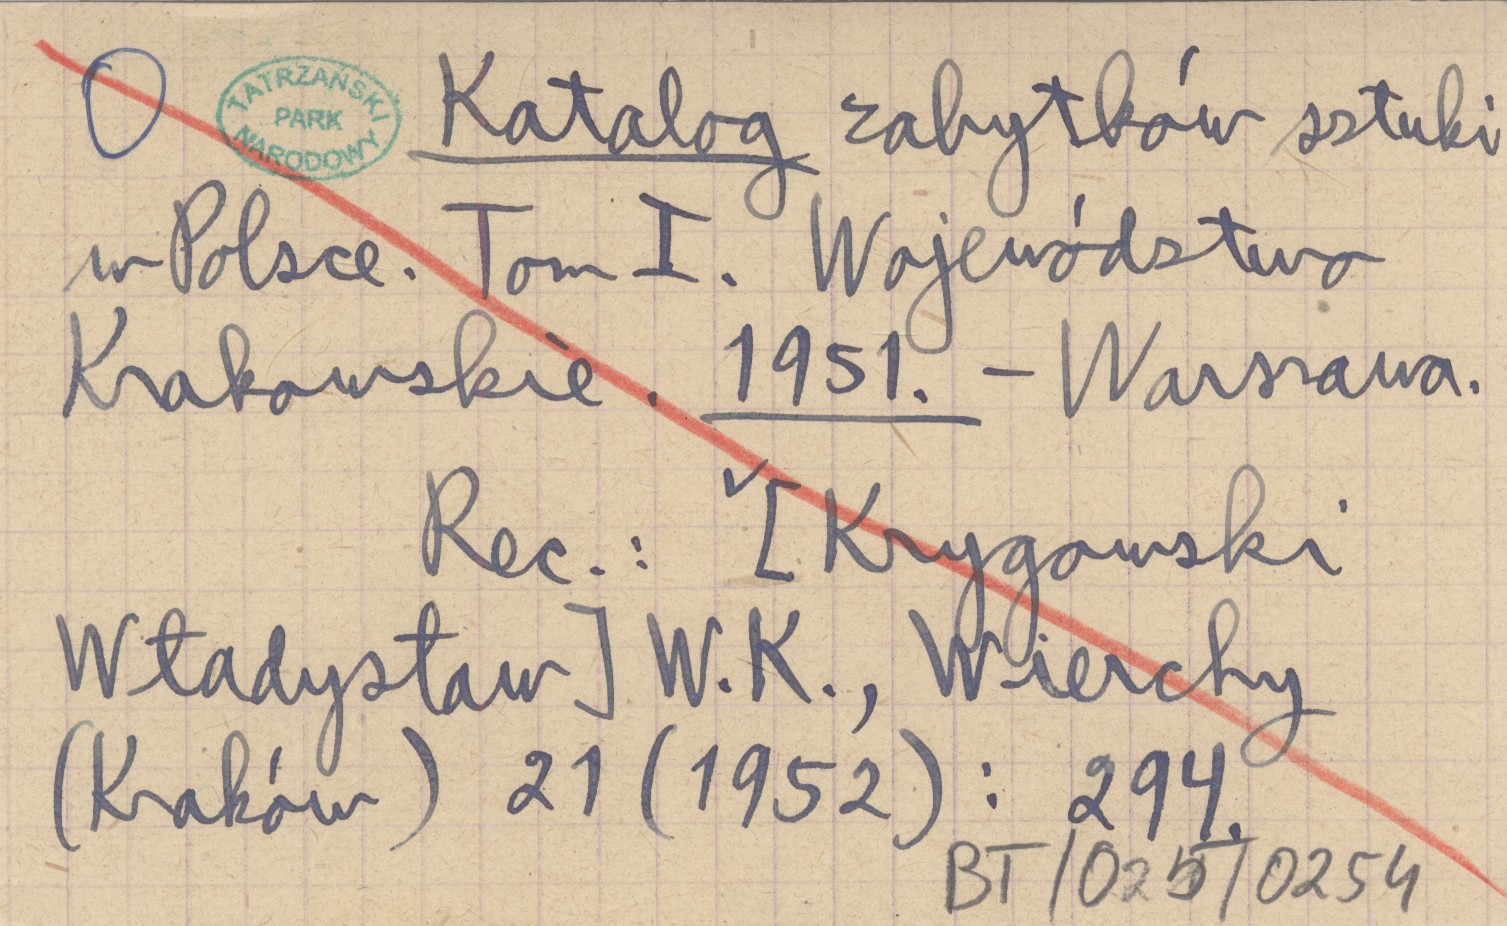 O TATRZAŃSKI PARK NARODOWY Katalog zabytków sztuki
w Polsce. Tom I. Województwo
Krakowskie. 1951. – Warszawa.
Rec.: [Krygowski
Władysław] W.K., Wierchy
(Kraków) 21 (1952): 294.
BT/025/0254